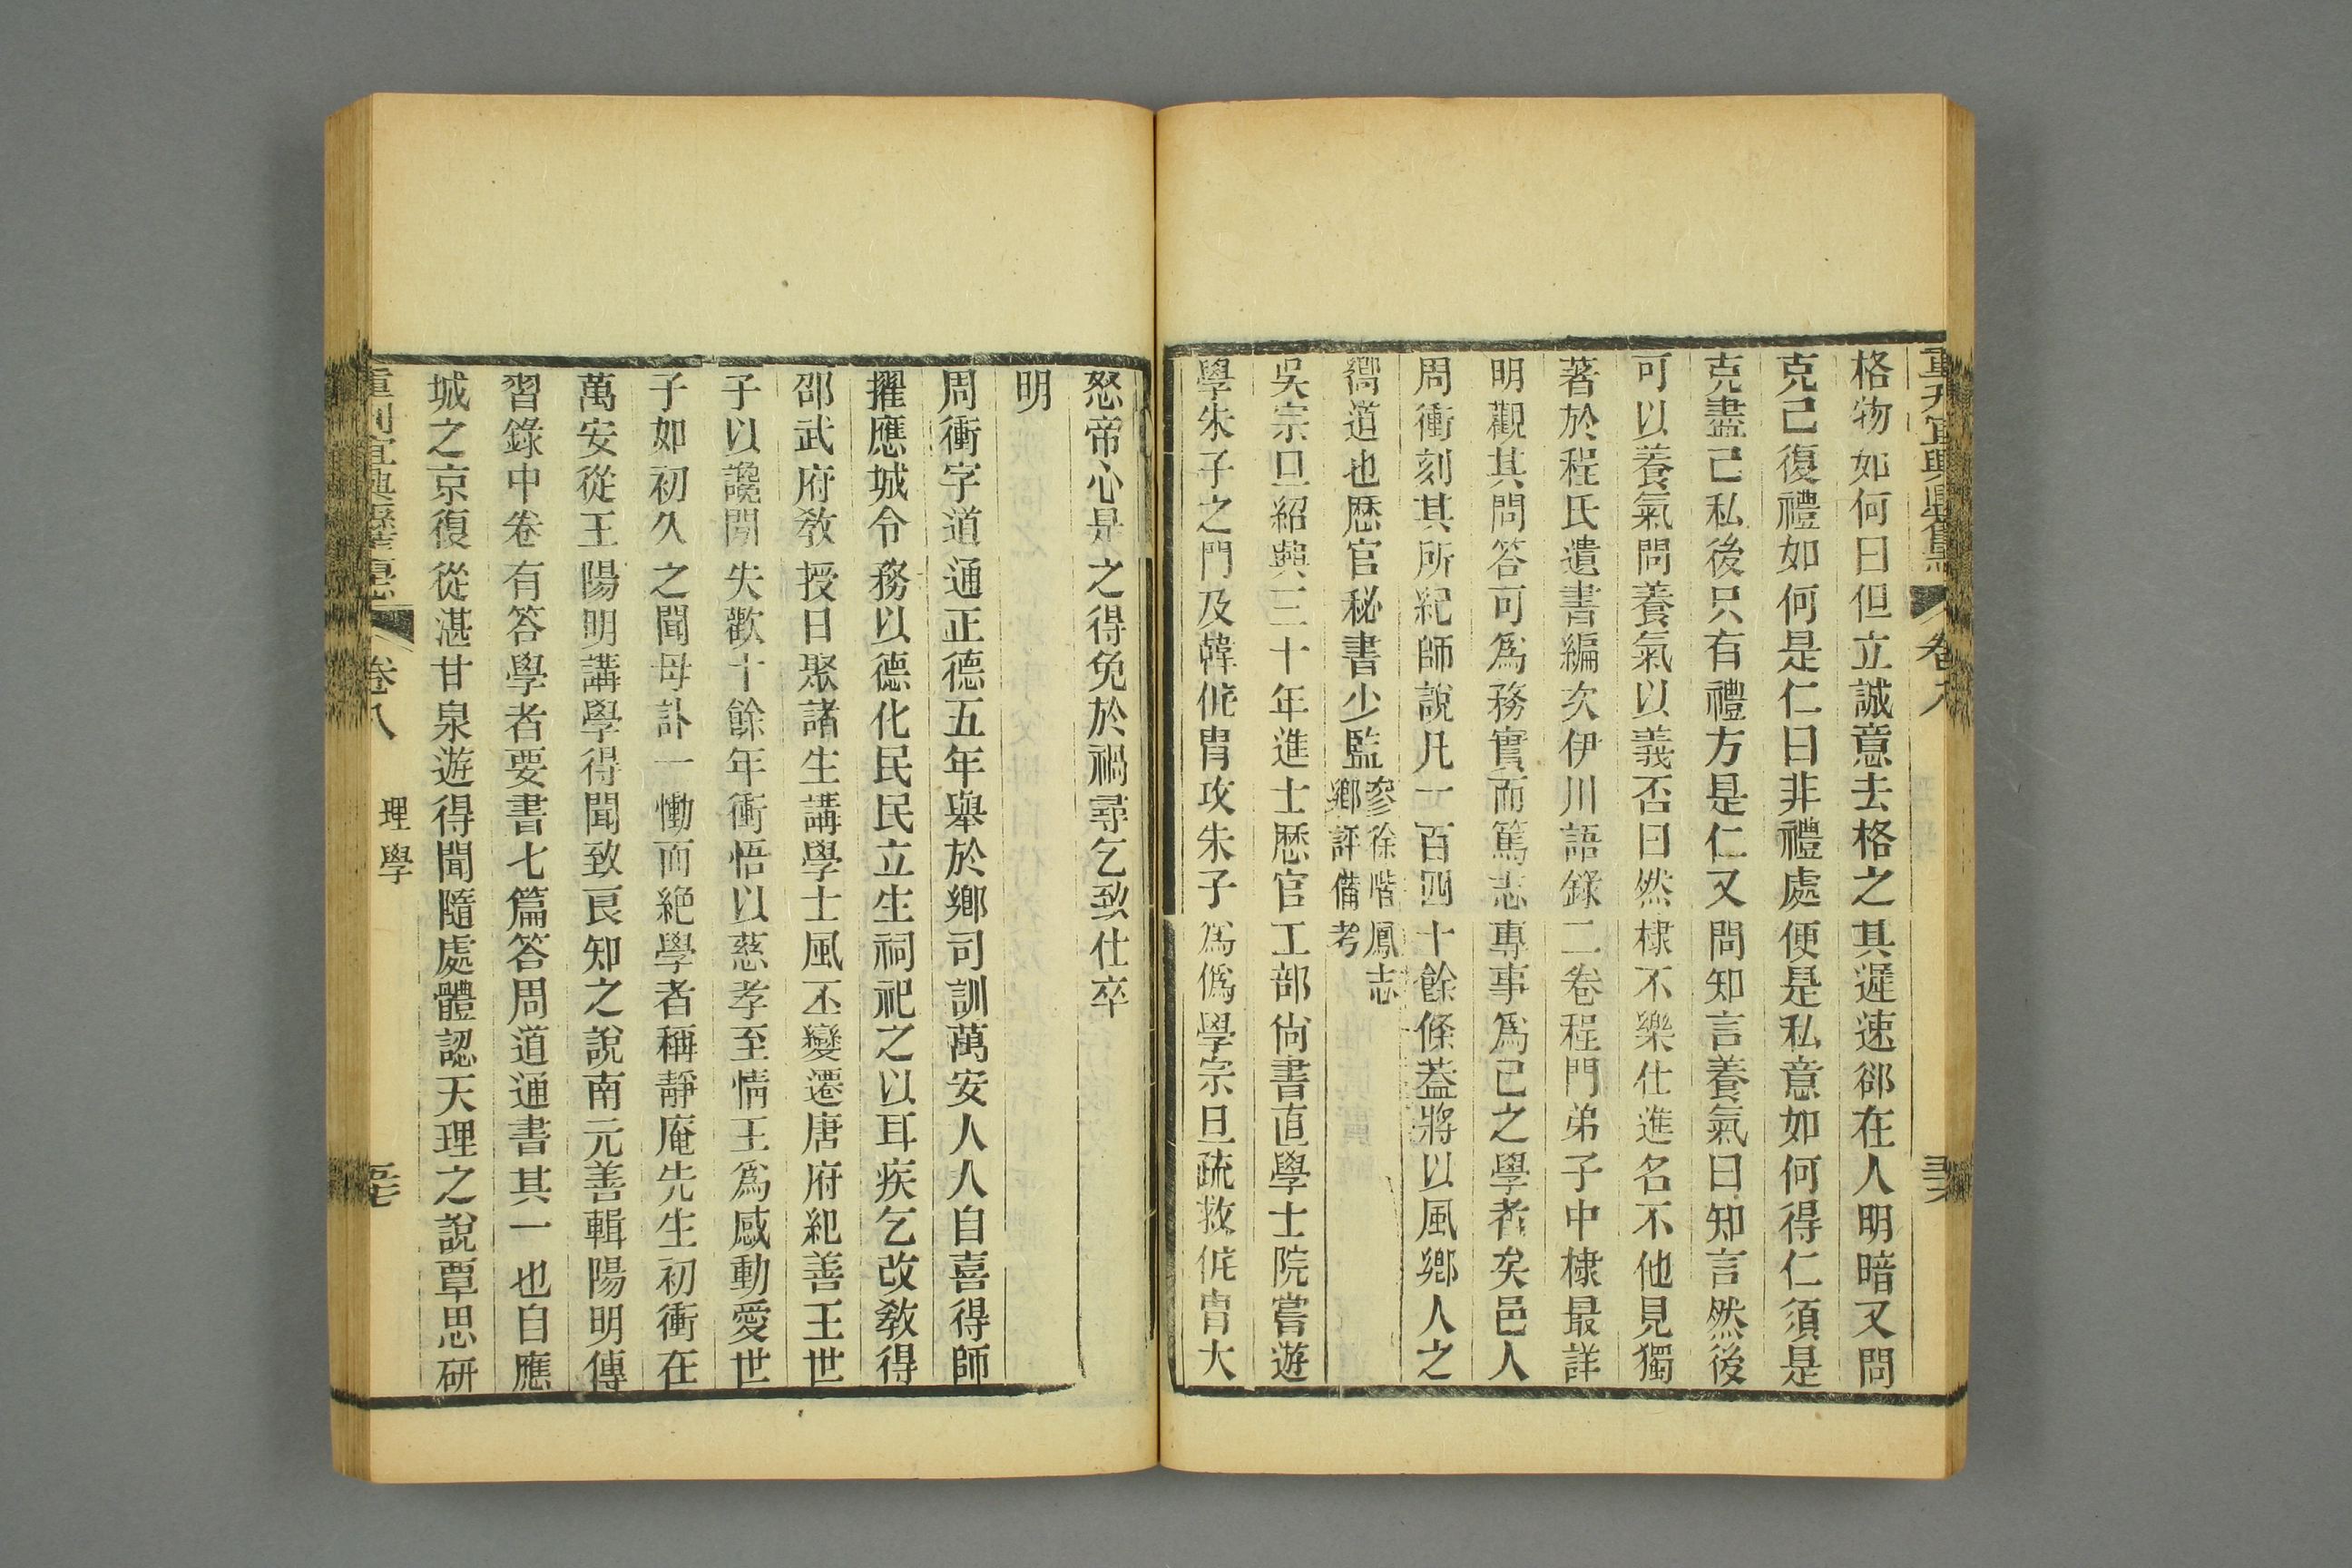 格物如何曰但立誠意去格之其遲速郤在人明暗又問
克己復禮如何是仁曰非禮處便是私意如何得仁須是
克盡己私後只有禮方是仁又問知言養氣曰知言然後
可以養氣問養氣以義否曰然棣不樂仕進名不他見獨
著於程氏遺書編次伊川語錄二卷程門弟子中棣最詳
明觀其問答可爲務實而篤志專事爲己之學者矣邑人
周衝刻其所紀師說凡一百四十餘條葢將以風鄉人之
嚮道也歷官秘書少監
參徐喈鳳志
鄉評備考
吳宗旦紹興三十年進士歷官工部尙書直學士院嘗遊
學朱子之門及韓侂胄攻朱子爲僞學宗旦疏救侂胄大
怒帝心是之得免於禍尋乞致仕卒
明
周衝字道通正德五年舉於鄉司訓萬安人人自喜得師
擢應城令務以德化民民立生祠祀之以耳疾乞改敎得
邵武府敎授日聚諸生講學士風丕變遷唐府紀善王世
子以讒間失歡十餘年衝悟以慈孝至情王爲感動愛世
子如初久之聞母訃一慟而絶學者稱靜庵先生初衝在
萬安從王陽明講學得聞致良知之說南元善輯陽明傳
習錄中卷有答學者要書七篇答周道通書其一也自應
城之京復從湛甘泉遊得聞隨處體認天理之說覃思研
卷八
理學